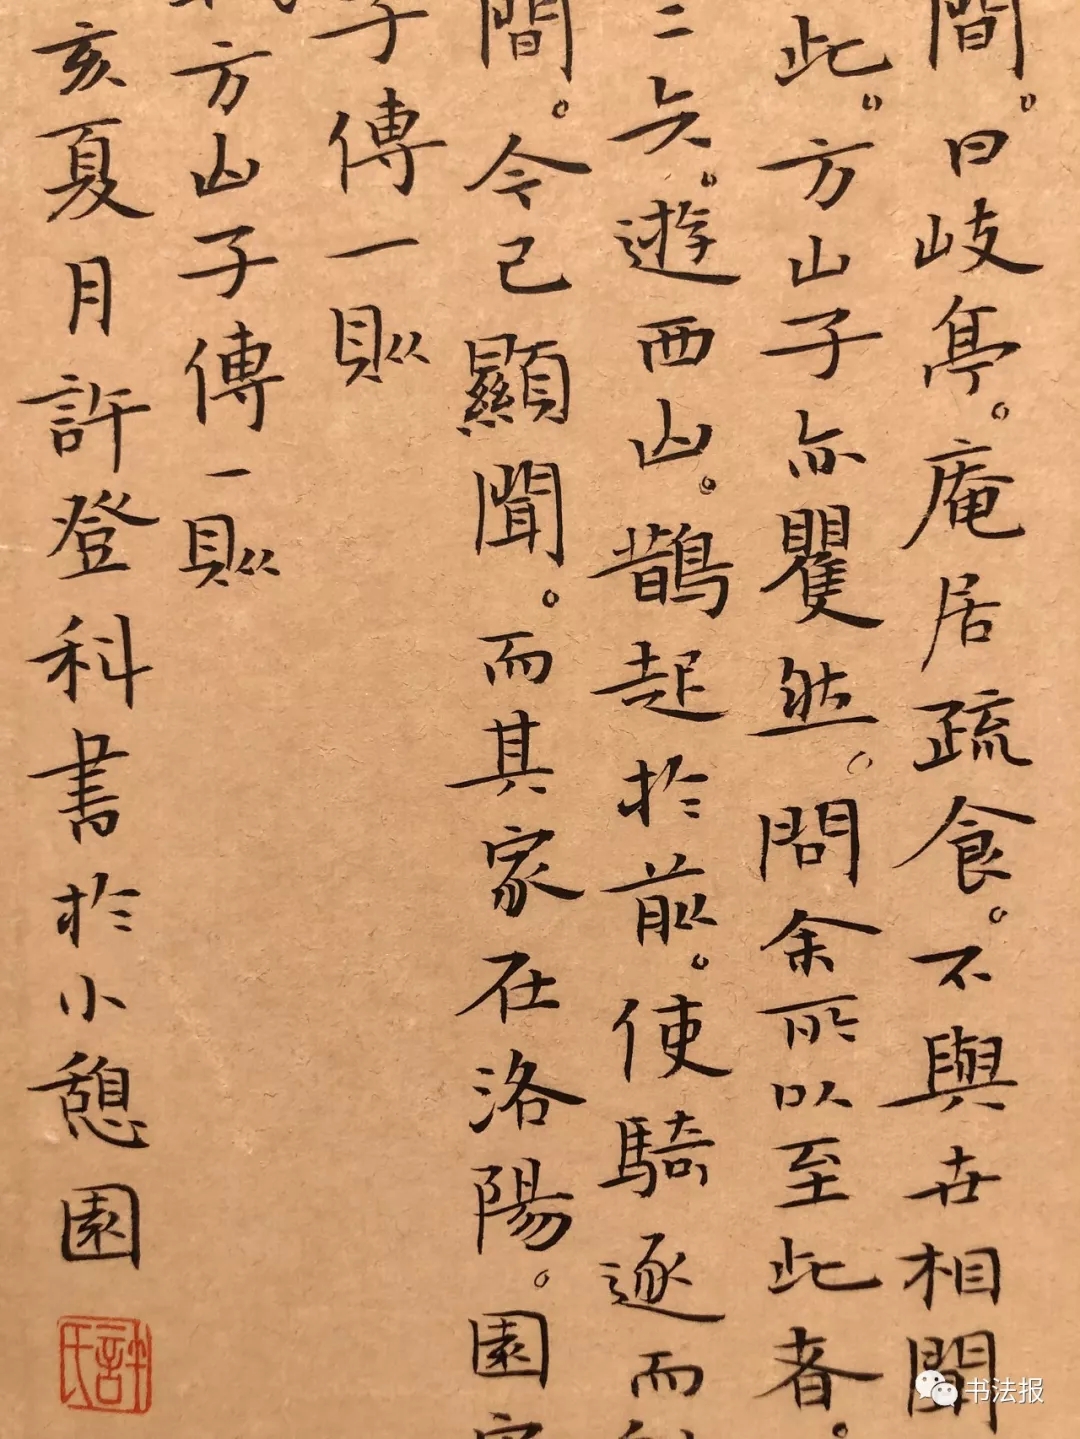 間。曰岐亭。庵居疏食。不與世相聞
此。方山子亦矍然。問余所以至此者。
二矢。遊西山。鵲起於前。使騎逐而
間。今已顯聞。而其家在洛陽。園
子傳一則
方山子傳一則
亥夏月許登科書於小憩園
許氏
书法报